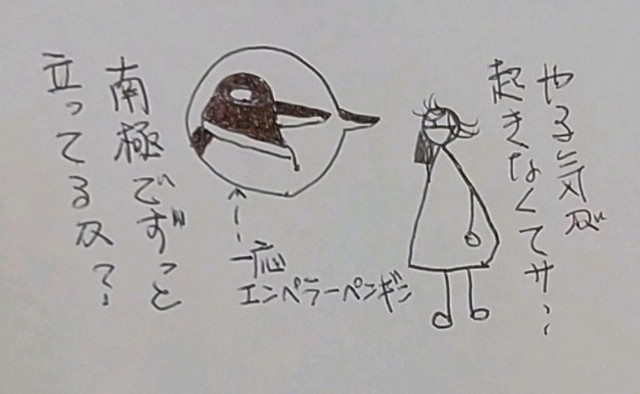 やる気が
起きなくてサ、
南極でずっと
立ってる及?
一応
エンペラーペンギン